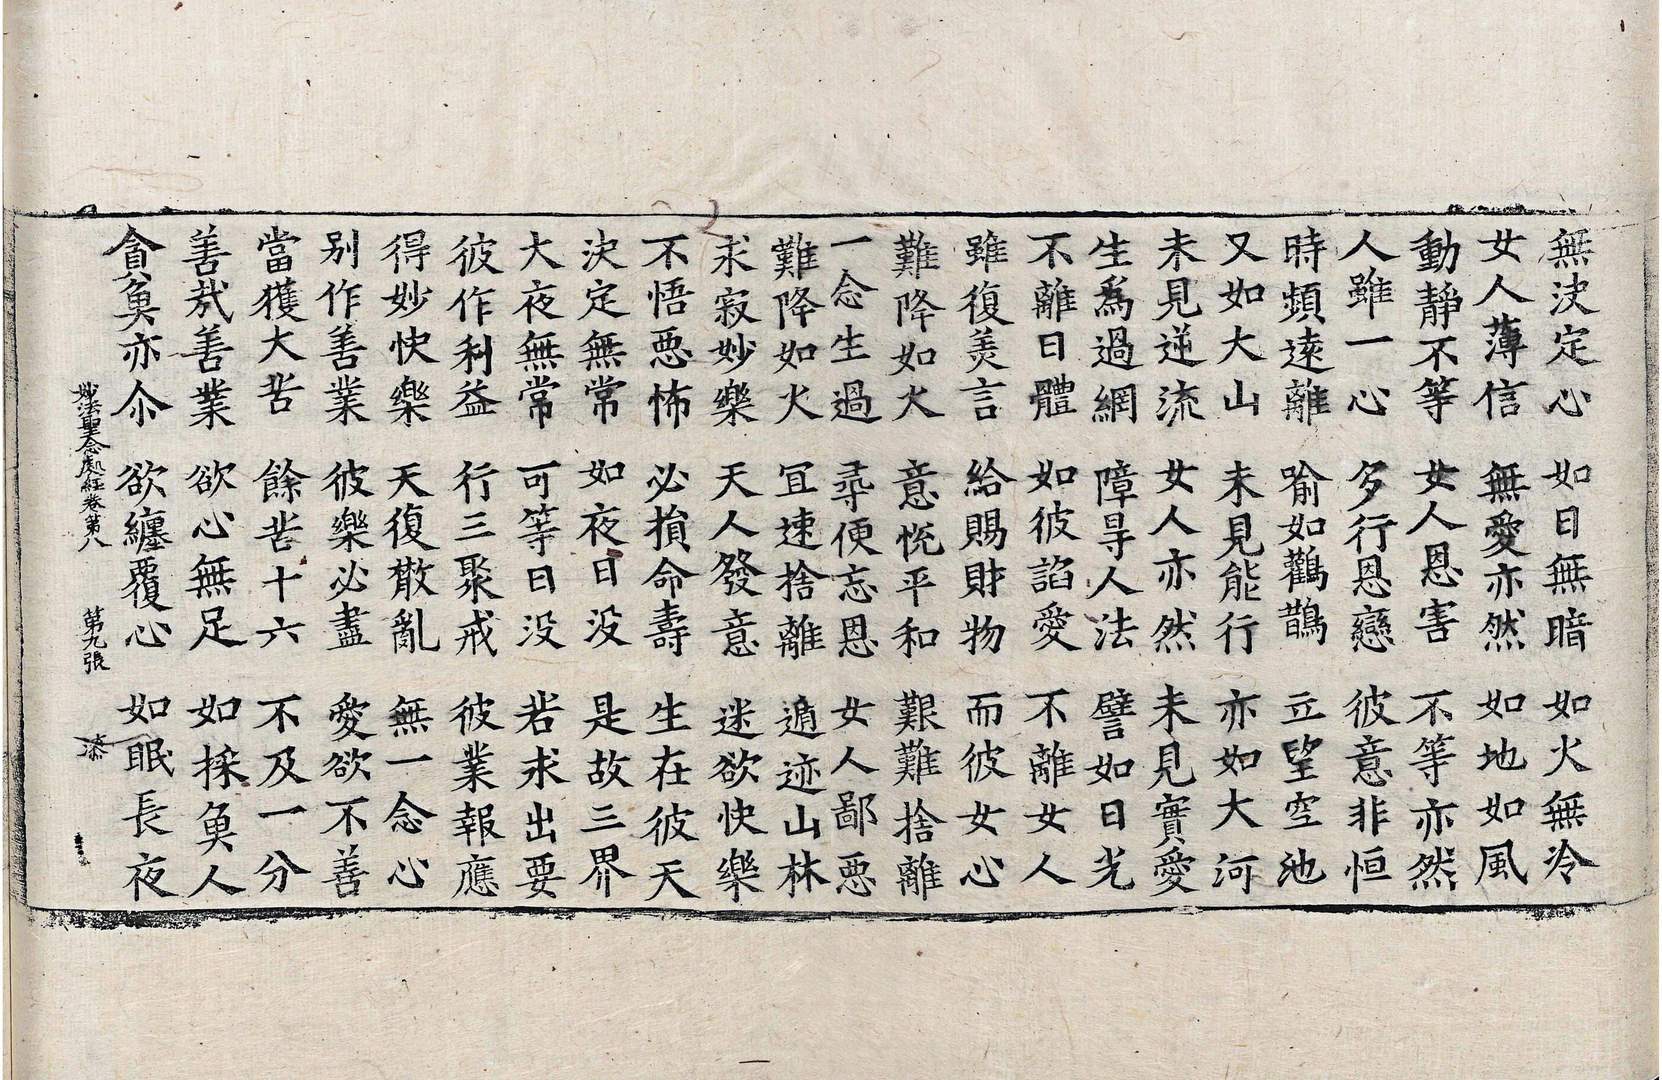 無決定心　如日無暗　如火無冷
女人薄信　無愛亦然　如地如風
動靜不等　女人恩害　不等亦然
人雖一心　多行恩戀　彼意非恒
時頻遠離　喻如鸛鵲　立望空池
又如大山　未見能行　亦如大河
未見逆流　女人亦然　未見實愛
生爲過網　障㝵人法　譬如日光
不離日體　如彼諂愛　不離女人
雖復美言　給賜財物　而彼女心
難降如火　意悦平和　艱難捨離
一念生過　尋便忘恩　女人鄙惡
難降如火　冝速捨離　遁迹山林
求寂妙樂　天人發意　迷欲快樂
不悟惡怖　必損命壽　生在彼天
決定無常　如夜日没　是故三界
大夜無常　可等日没　若求出要
彼作利益　行三聚戒　彼業報應
得妙快樂　天復散亂　無一念心
别作善業　彼樂必盡　愛欲不善
當獲大苦　餘苦十六　不及一分
善哉善業　欲心無足　如採魚人
貪魚亦尒　欲纏覆心　如眠長夜
妙法聖念處經卷第八　第九張　漆